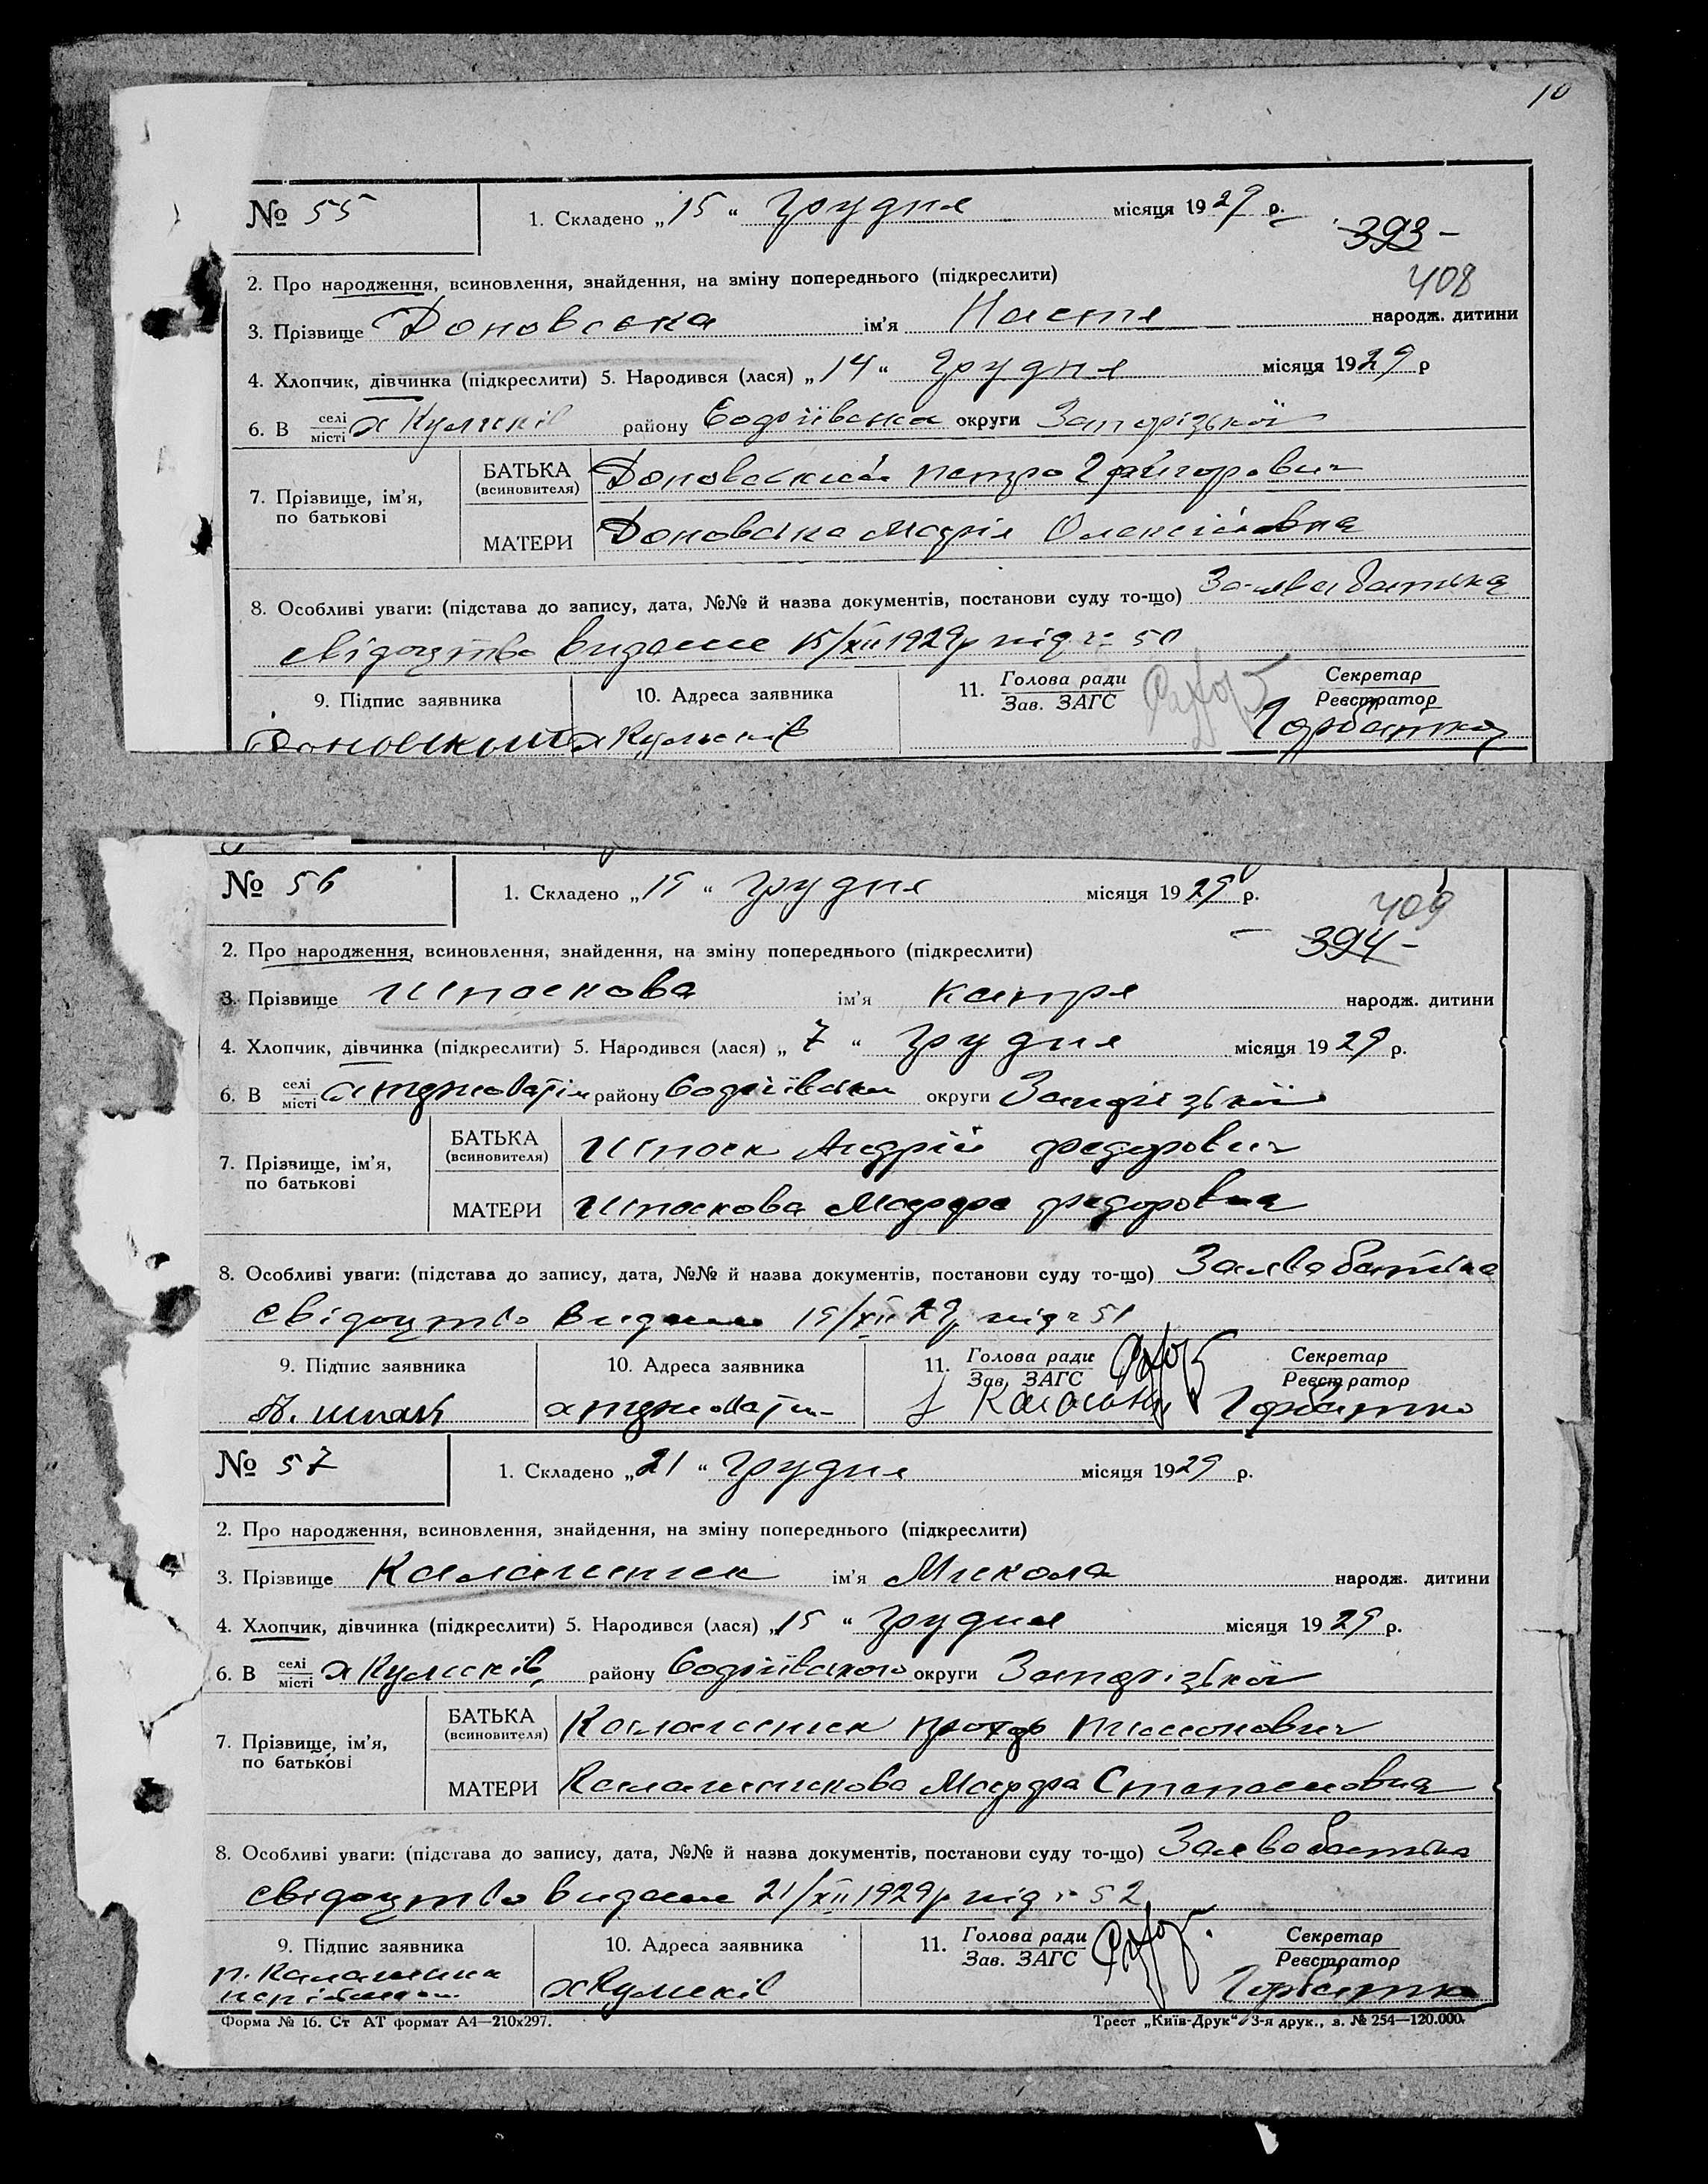 10
№ 55
1. Складено „15“ грудня місяця 1929 р.
393 –
2. Про народження, всиновлення, знайдення, на зміну попереднього (підкреслити)
408
3. Прізвище Доновська ім'я Настя народж. дитини
4. Хлопчик, дівчинка (підкреслити) 5. Народився (лася) „14“ грудня місяця 1929 р
6. В селі місті х Кулшків району округи Запорізької
7. Прізвище, ім'я, по батькові
БАТЬКА (всиновителя) Доновський Петро Григорович
МАТЕРИ Доновська Марія Олексіївна
8. Особливі уваги: (підстава до запису, дата, №№ й назва документів, постанови суду то-що) Заява батька
свідоцтво видане 15/XII 1929р під № 50
9. Підпис заявника
10. Адреса заявника
11. Голова ради Зав. ЗАГС
Секретар Реєстратор
Горбатко
№ 56
1. Складено „15“ грудня місяця 1929 р.
409
2. Про народження, всиновлення, знайдення, на зміну попереднього (підкреслити)
394 –
3. Прізвище Шпакова ім'я Катря народж. дитини
4. Хлопчик, дівчинка (підкреслити) 5. Народився (лася) „7“ грудня місяця 1929 р.
6. В селі місті району округи Запорізької
7. Прізвище, ім'я, по батькові
БАТЬКА (всиновителя) Шпак Андрій Федорович
МАТЕРИ Шпакова Марфа Федоровна
8. Особливі уваги: (підстава до запису, дата, №№ й назва документів, постанови суду то-що) Заява батька
свідоцтво видане 15/XII 29р під № 51
9. Підпис заявника
10. Адреса заявника
11. Голова ради Зав. ЗАГС
Секретар Реєстратор
А. Шпак
Горбатко
№ 57
1. Складено „21“ грудня місяця 1929 р.
2. Про народження, всиновлення, знайдення, на зміну попереднього (підкреслити)
3. Прізвище Калашник ім'я Микола народж. дитини
4. Хлопчик, дівчинка (підкреслити) 5. Народився (лася) „15“ грудня місяця 1929 р.
6. В селі місті х Кулшків району округи Запорізької
7. Прізвище, ім'я, по батькові
БАТЬКА (всиновителя) Калашник
МАТЕРИ Калашникова Марфа Степановна
8. Особливі уваги: (підстава до запису, дата, №№ й назва документів, постанови суду то-що) Заява батька
свідоцтво видане 21/XII 1929р під № 52
9. Підпис заявника
10. Адреса заявника
11. Голова ради Зав. ЗАГС
Секретар Реєстратор
х Кулшків
Горбатко
Форма № 16. Ст АТ формат А4—210х297.
Трест „Київ-Друк“ 3-я друк., з. № 254—120.000.